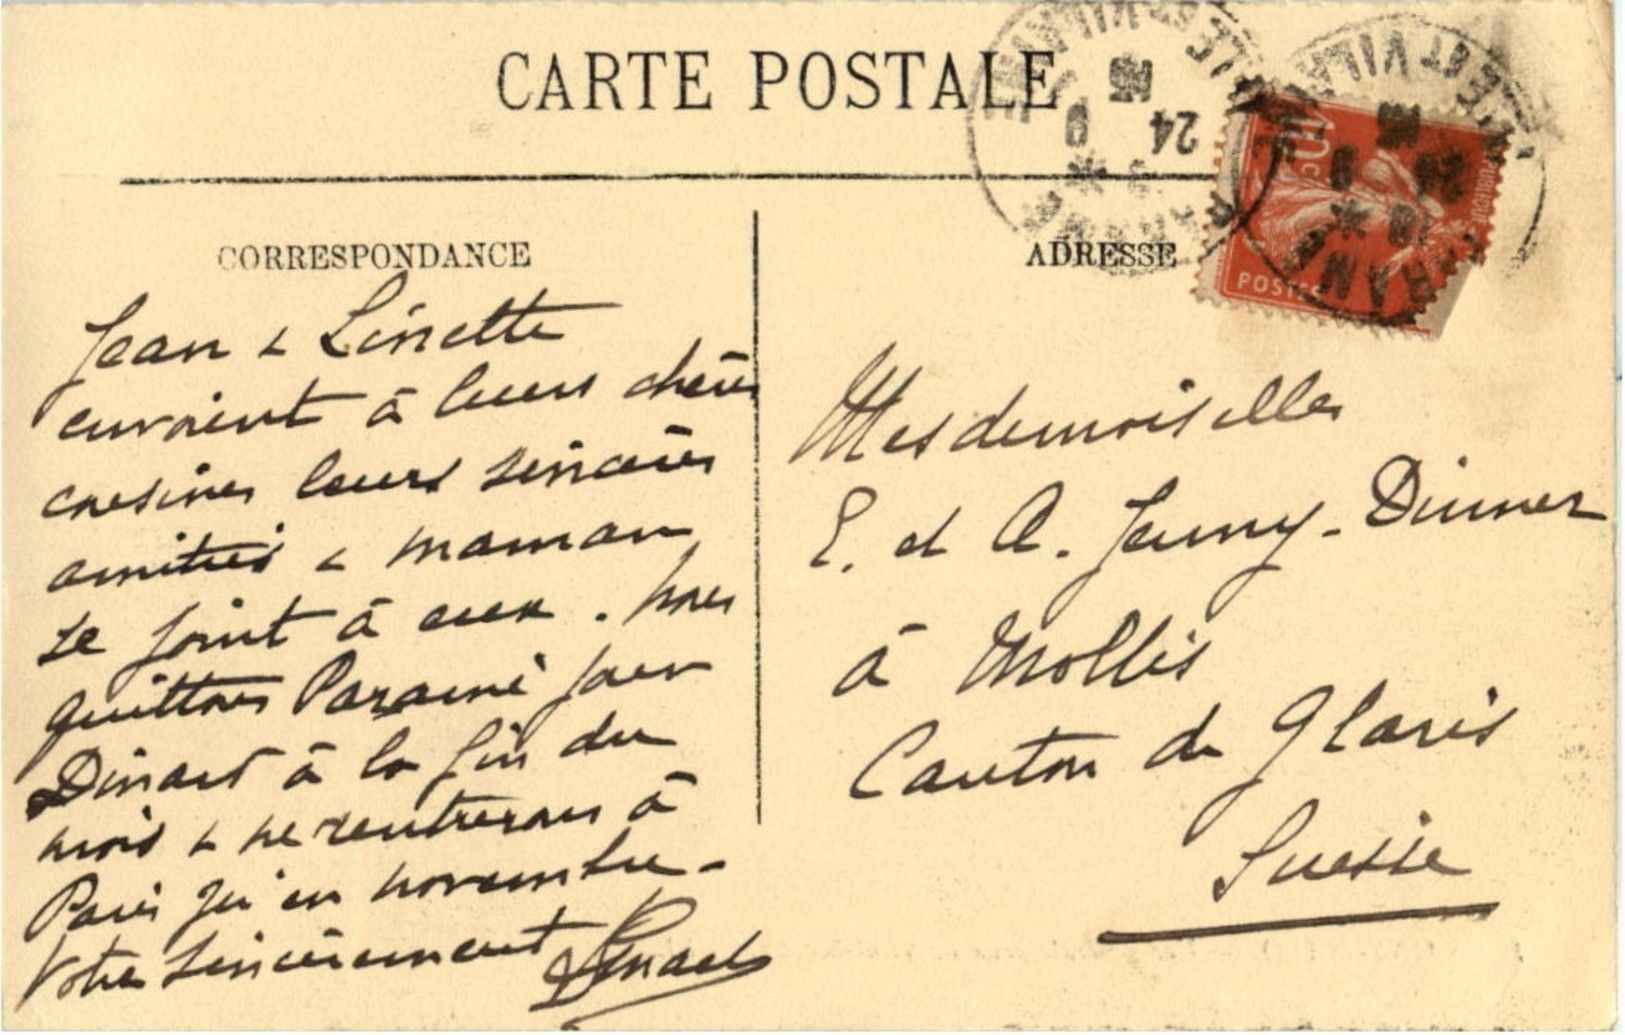 CARTE POSTALE
CORRESPONDANCE
Jean & Linette
envoient à leurs chères
cousines leurs sincères
amitiés & maman
se joint à eux. Nous
quittons Paramé pour
Dinard à la fin du
mois & ne rentrerons à
Paris qu'en novembre -
Votre sincèrement
ADRESSE
Mesdemoiselles
E. et A. Jenny-Dinner
à Mollis
Canton de Glaris
Suisse
10c
POSTES
ILLE ET VILAINE
24
9